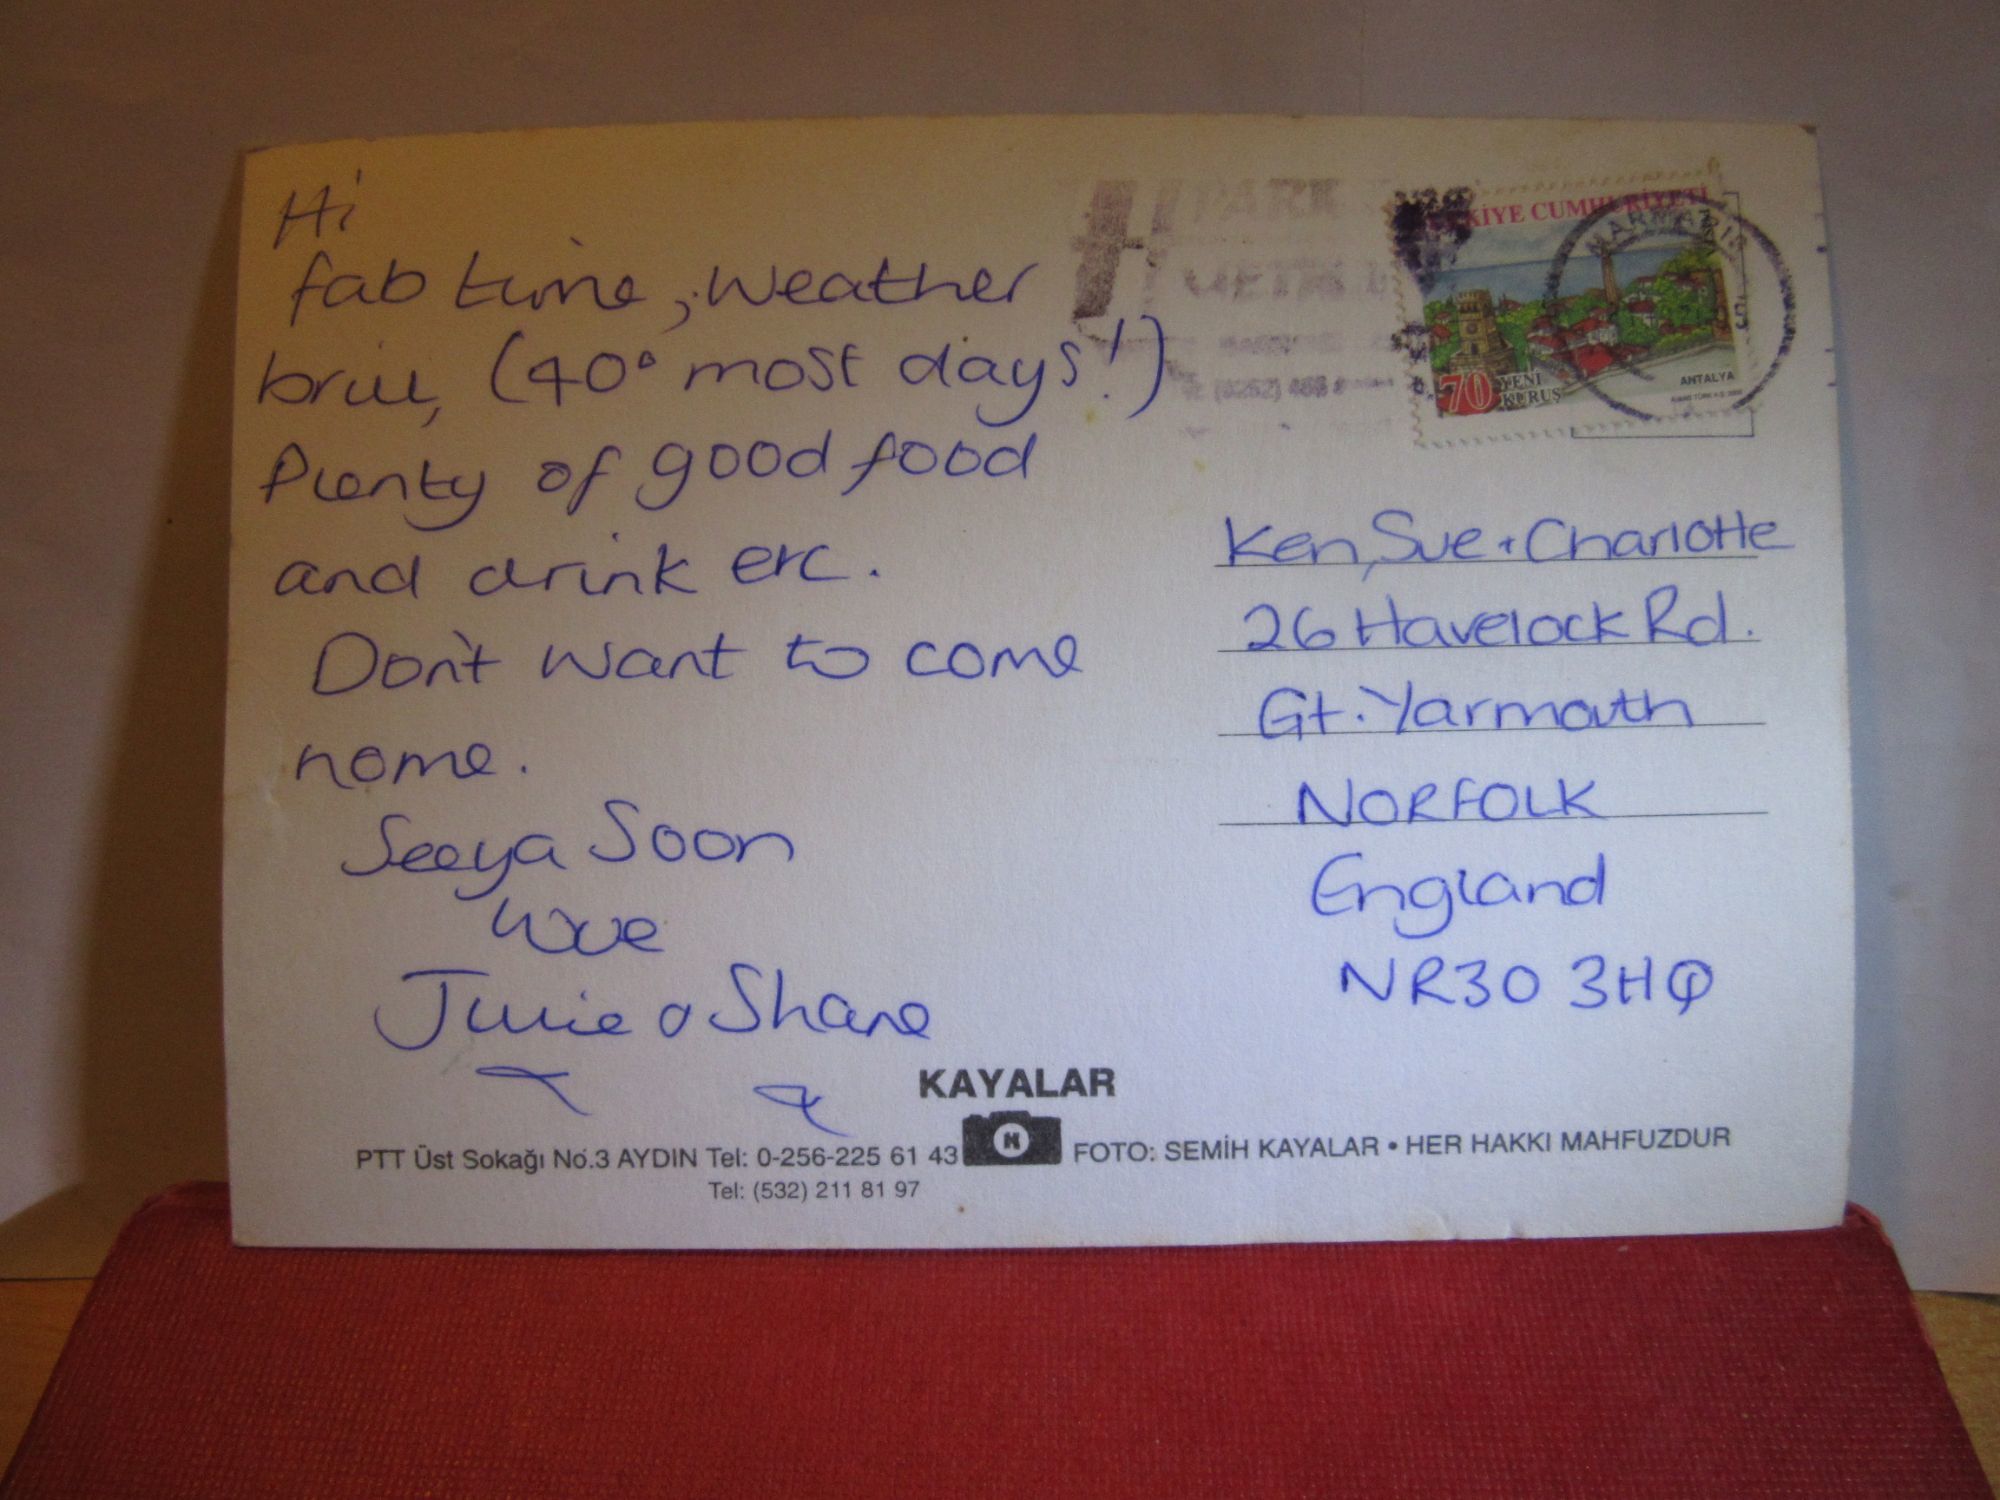 Hi
fab time, weather
brill, (40° most days!)
Plenty of good food
and drink etc.
Don't want to come
home.
Seeya Soon
love
Julie & Shane
PARK
METİN
(0252)
TÜRKİYE CUMHURİYETİ
MARMARİS
70 YENİ
KURUŞ
ANTALYA
Ken, Sue + Charlotte
26 Havelock Rd.
Gt. Yarmouth
NORFOLK
England
NR30 3HQ
KAYALAR
K
PTT Üst Sokağı No.3 AYDIN Tel: 0-256-225 61 43
Tel: (532) 211 81 97
FOTO: SEMİH KAYALAR • HER HAKKI MAHFUZDUR